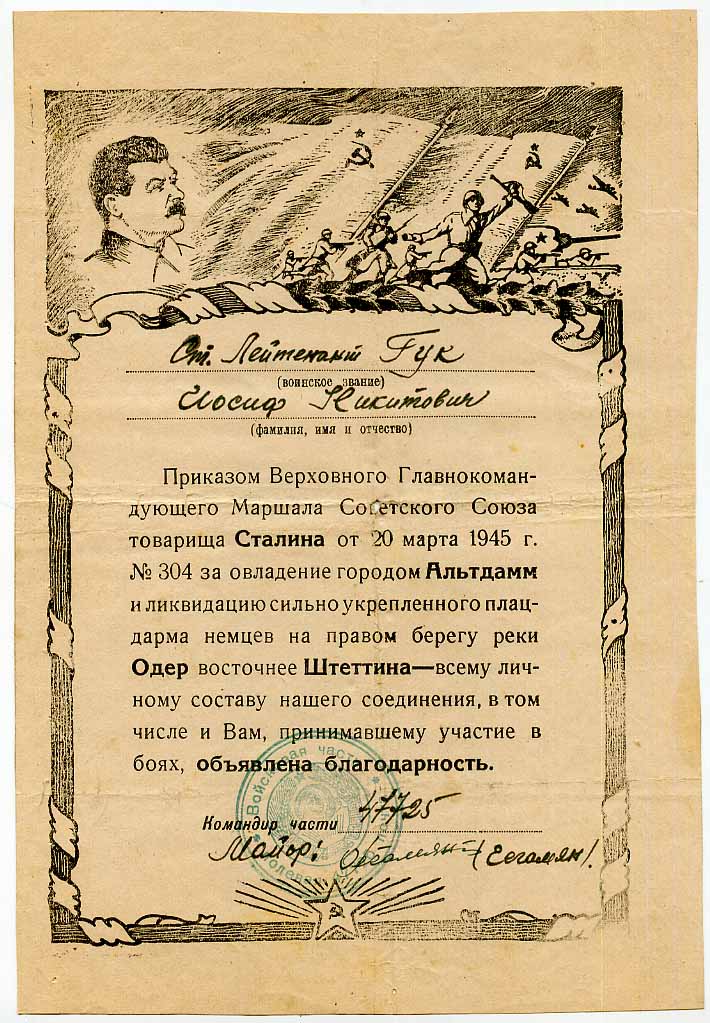 Ст. Лейтенант Гук
(воинское звание)
Иосиф Никитович
(фамилия, имя и отчество)
Приказом Верховного Главнокоман-
дующего Маршала Советского Союза
товарища Сталина от 20 марта 1945 г.
№ 304 за овладение городом Альтдамм
и ликвидацию сильно укрепленного плац-
дарма немцев на правом берегу реки
Одер восточнее Штеттина—всему лич-
ному составу нашего соединения, в том
числе и Вам, принимавшему участие в
боях, объявлена благодарность.
Войсковая часть
Командир части 47725
Майор: